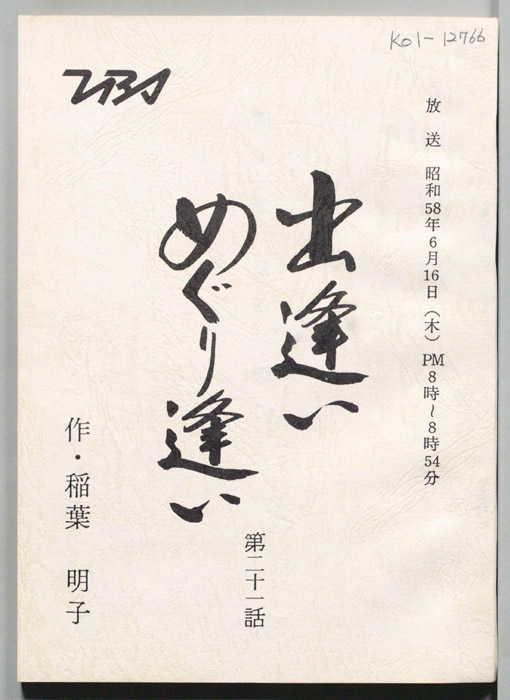 Ko1-12766
TBS
放送 昭和58年6月16日（木）PM8時〜8時54分
出逢い
めぐり逢い
第二十一話
作・稲葉 明子